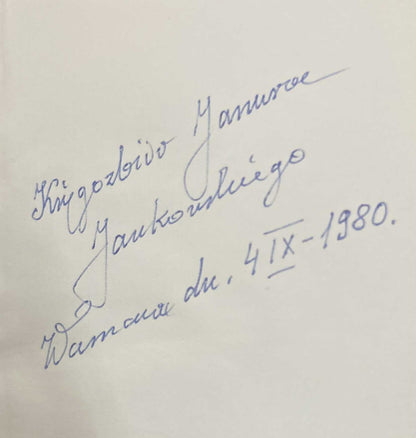 Księgozbiór Janusza
Jankowskiego
Warszawa dn. 4 IX-1980.